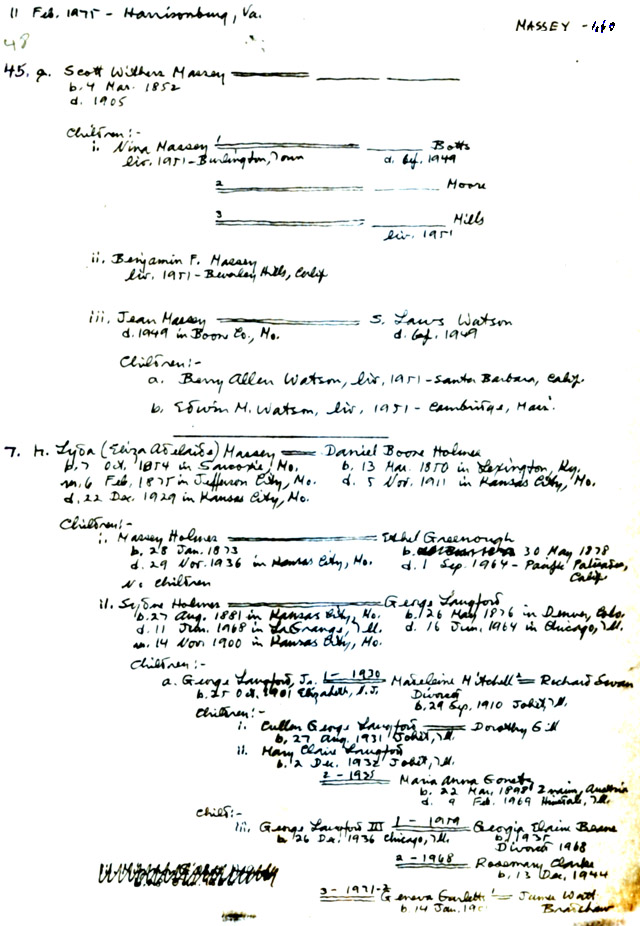 11 Feb. 1975 - Harrisonburg, Va.
MASSEY -
48
45. g. Scott Withers Massey
b. 4 Mar. 1852
d. 1905
Children:-
i. Nina Massey 1 Botts
liv. 1951 - Burlington, Ioun d. bef. 1949
2 Moore
3 Mills
liv. 1951
ii. Benjamin F. Massey
liv. 1951 - Beverley Hills, Calif
iii. Jean Massey S. Laws Watson
d. 1949 in Boone Co., Mo. d. bef. 1949
Children:-
a. Berry Allen Watson, liv. 1951 - Santa Barbara, Calif.
b. Edwin M. Watson, liv. 1951 - Cambridge, Mass.
7. h. Lyda (Eliza Adelaide) Massey Daniel Boone Holmes
b. 7 Oct. 1854 in Sarcoxie, Mo. b. 13 Mar. 1850 in Lexington, Ky.
m. 6 Feb. 1875 in Jefferson City, Mo. d. 5 Nov. 1911 in Kansas City, Mo.
d. 22 Dec. 1929 in Kansas City, Mo.
Children:-
i. Massey Holmes Ethel Greenough
b. 28 Jan. 1873 b. 30 May 1878
d. 29 Nov. 1936 in Kansas City, Mo. d. 1 Sep. 1964 - Pacific Palisades,
No children Calif
ii. Holmes George Langford
b. 27 Aug. 1881 in Kansas City, Mo. b. 26 May 1876 in Denver, Colo.
d. 11 Jun. 1968 in LaGrange, Ill. d. 16 Jun. 1964 in Chicago, Ill.
m. 14 Nov. 1900 in Kansas City, Mo.
Children:-
a. George Langford, Jr. 1 - 1930 Madeleine Mitchell 2 Richard Swan
b. 25 Oct. 1901 Elizabeth, N.J. Divorced
b. 29 Sep. 1910 Joliet, Ill.
Children:-
i. Cullen George Langford Dorothy Gill
b. 27 Aug. 1931 Joliet, Ill.
ii. Mary Claire Langford
b. 2 Dec. 1932 Joliet, Ill.
2 - 1935 Maria Anna
b. 22 Mar. 1898 Znaim, Austria
d. 9 Feb. 1969 Hinsdale, Ill.
Child:-
iii. George Langford III 1 - 1959 Georgia Elaine Beane
b. 26 Dec. 1936 Chicago, Ill. b. 1935
Divorced 1968
2 - 1968 Rosemary Clarke
b. 13 Dec. 1944
3 - 1971-2 Geneva 1 James Watt
b. 14 Jan. Bradshaw